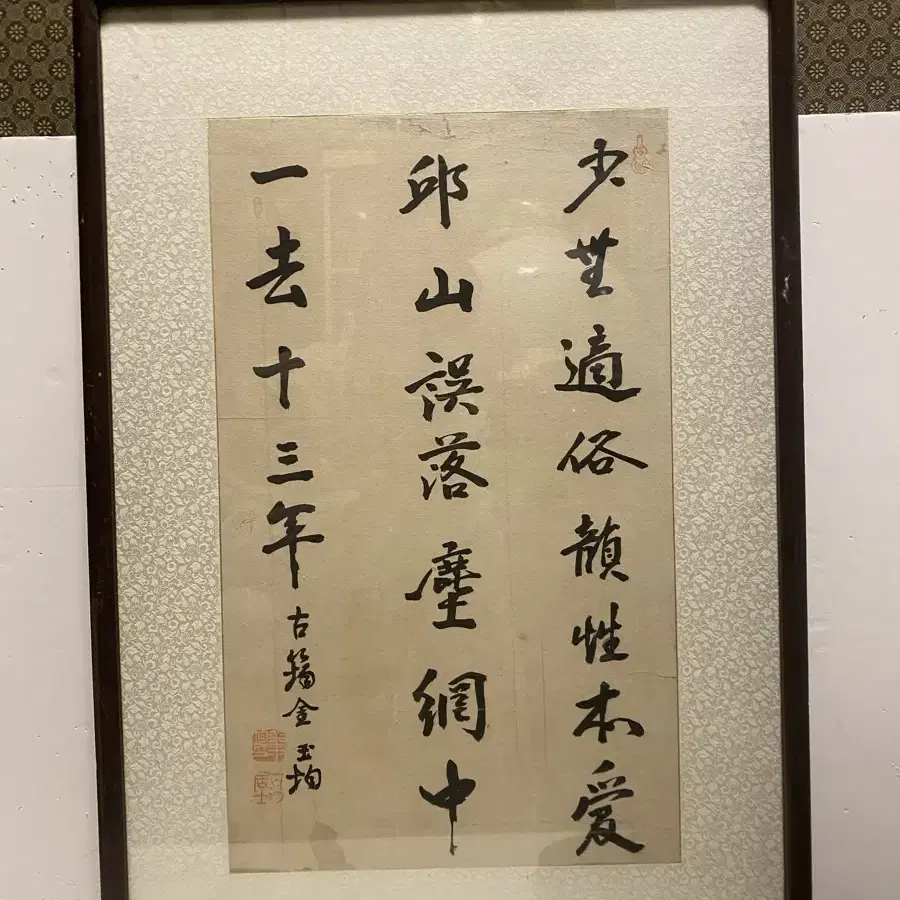 少無適俗韻性本愛
邱山誤落塵網中
一去十三年
古筠金玉均